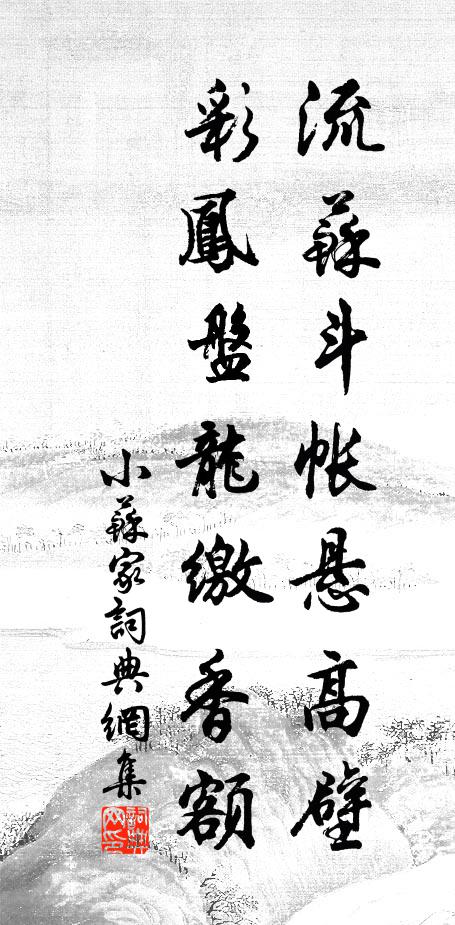 流蘇斗帳悬高壁
彩鳳盤龍繳香額
小蘇家詞典網集
詞典网印